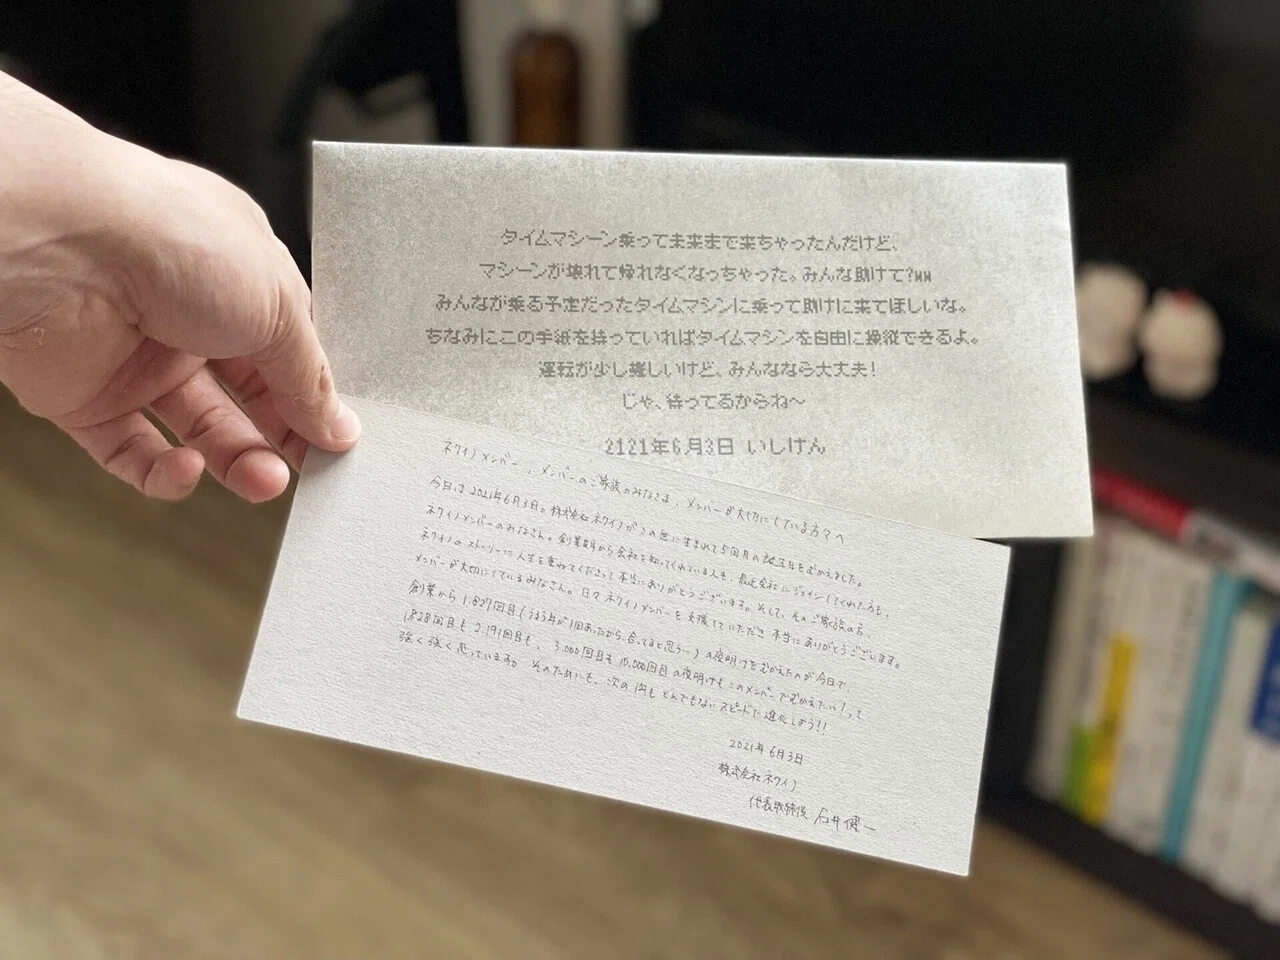 タイムマシーン乗って未来まで来ちゃったんだけど、
マシーンが壊れて帰れなくなっちゃった。みんな助けて?ww
みんなが乗る予定だったタイムマシンに乗って助けに来てほしいな。
ちなみにこの手紙を持っていればタイムマシンを自由に操縦できるよ。
運転が少し難しいけど、みんななら大丈夫!
じゃ、待ってるからね〜
2121年6月3日 いしけん
ネクイノメンバー、メンバーのご家族のみなさま、メンバーが大切にしている方々へ
今日は2021年6月3日。株式会社ネクイノがこの世に生まれて5回目の誕生日をむかえました。
ネクイノメンバーのみなさん。創業期から会社を知ってくれている人も、最近会社にジョインしてくれた方も、
ネクイノのストーリーに人生を重ねてくださって本当にありがとうございます。そして、そのご家族の方、
メンバーが大切にしているみなさん。日々ネクイノメンバーを支援していただき本当にありがとうございます。
創業から1,827回目(うるう年が1回あったから、合ってると思う…)の夜明けをむかえたのが今日で、
1,828回目も2,191回目も、3,000回目も10,000回目の夜明けもこのメンバーでむかえたい!って
強く強く思っています。そのためにも、次の1年もとんでもないスピードで進化しよう!!
2021年6月3日
株式会社ネクイノ
代表取締役 石井健一